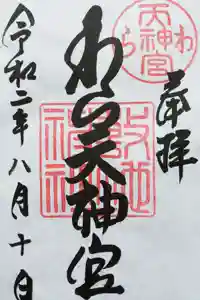 わら天神宮
奉拝
わら天神宮
敷地神社
令和二年八月十日